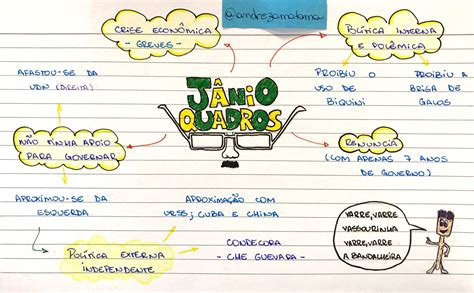 @andrezamatama
CRISE ECONÔMICA
- GREVES -
POLÍTICA INTERNA
E POLÊMICA
AFASTOU-SE DA
UDN (DIREITA)
PROIBIU O
USO DE
BIQUINI
PROIBIU A
BRIGA DE
GALOS
JÂNIO
QUADROS
NÃO TINHA APOIO
PARA GOVERNAR
RENUNCIA
(COM APENAS 7 ANOS
DE GOVERNO)
APROXIMOU-SE DA
ESQUERDA
APROXIMAÇÃO COM
URSS, CUBA E CHINA
POLÍTICA EXTERNA
INDEPENDENTE
CONDECORA
- CHE GUEVARA -
VARRE, VARRE
VASSOURINHA
VARRE, VARRE
A BANDALHEIRA